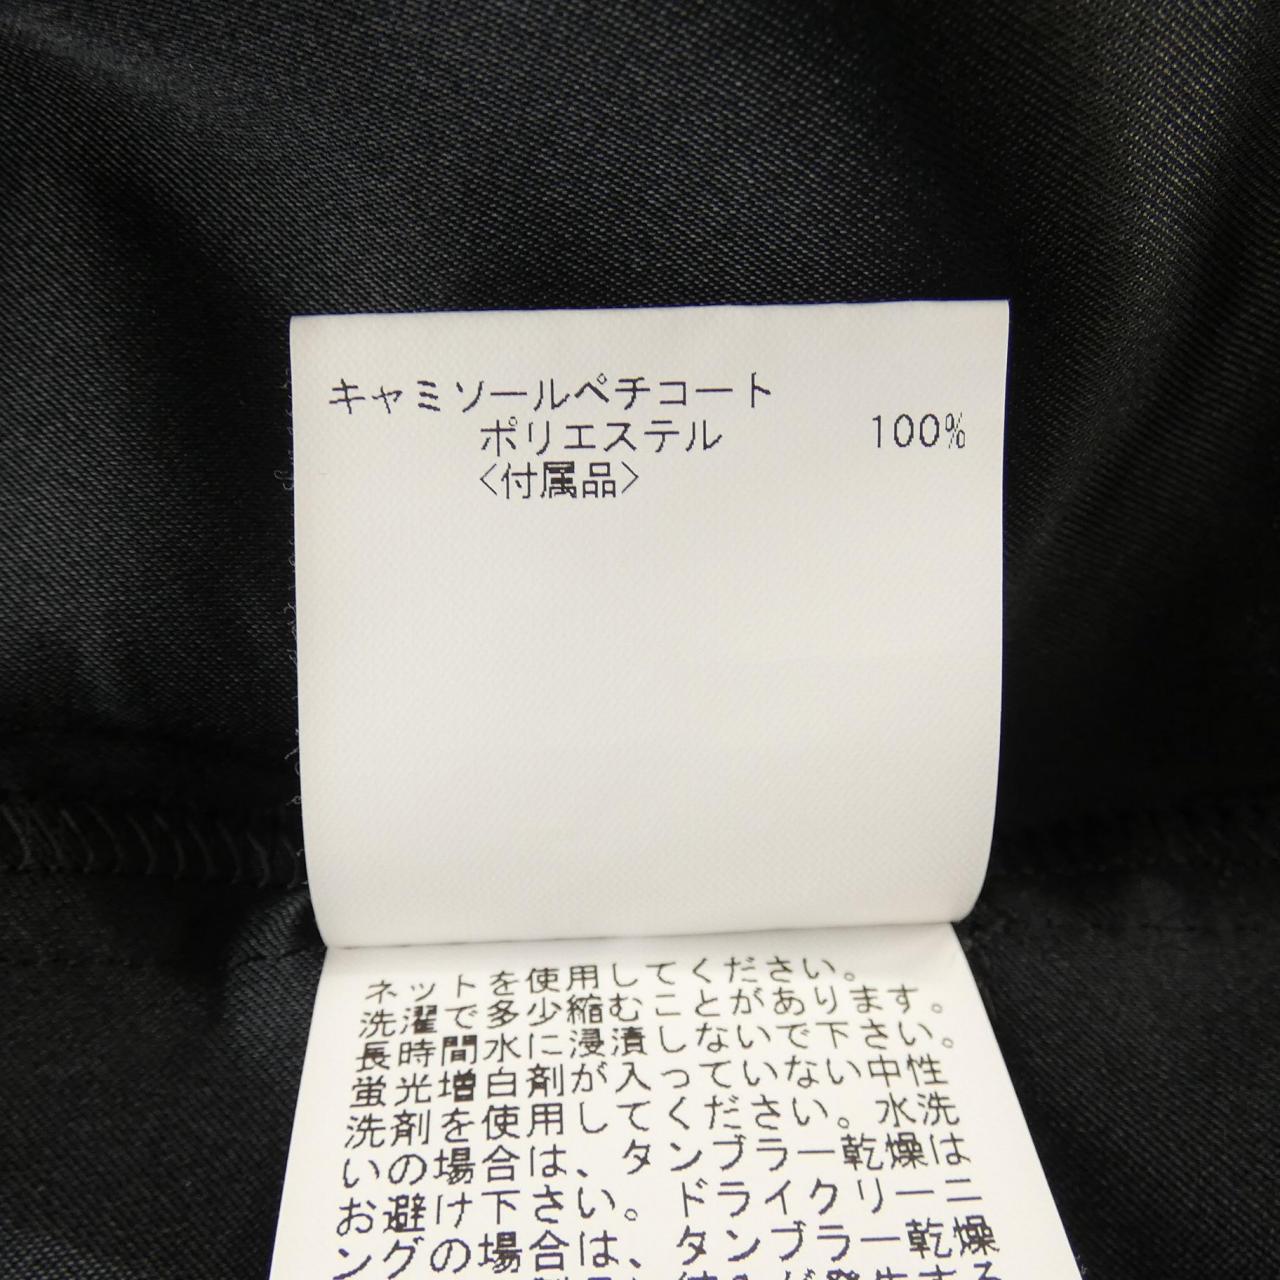 キャミソールペチコート
ポリエステル 100%
<付属品>
ネットを使用してください。
洗濯で多少縮むことがあります。
長時間水に浸漬しないで下さい。
蛍光増白剤が入っていない中性
洗剤を使用してください。水洗
いの場合は、タンブラー乾燥は
お避け下さい。ドライクリーニ
ングの場合は、タンブラー乾燥